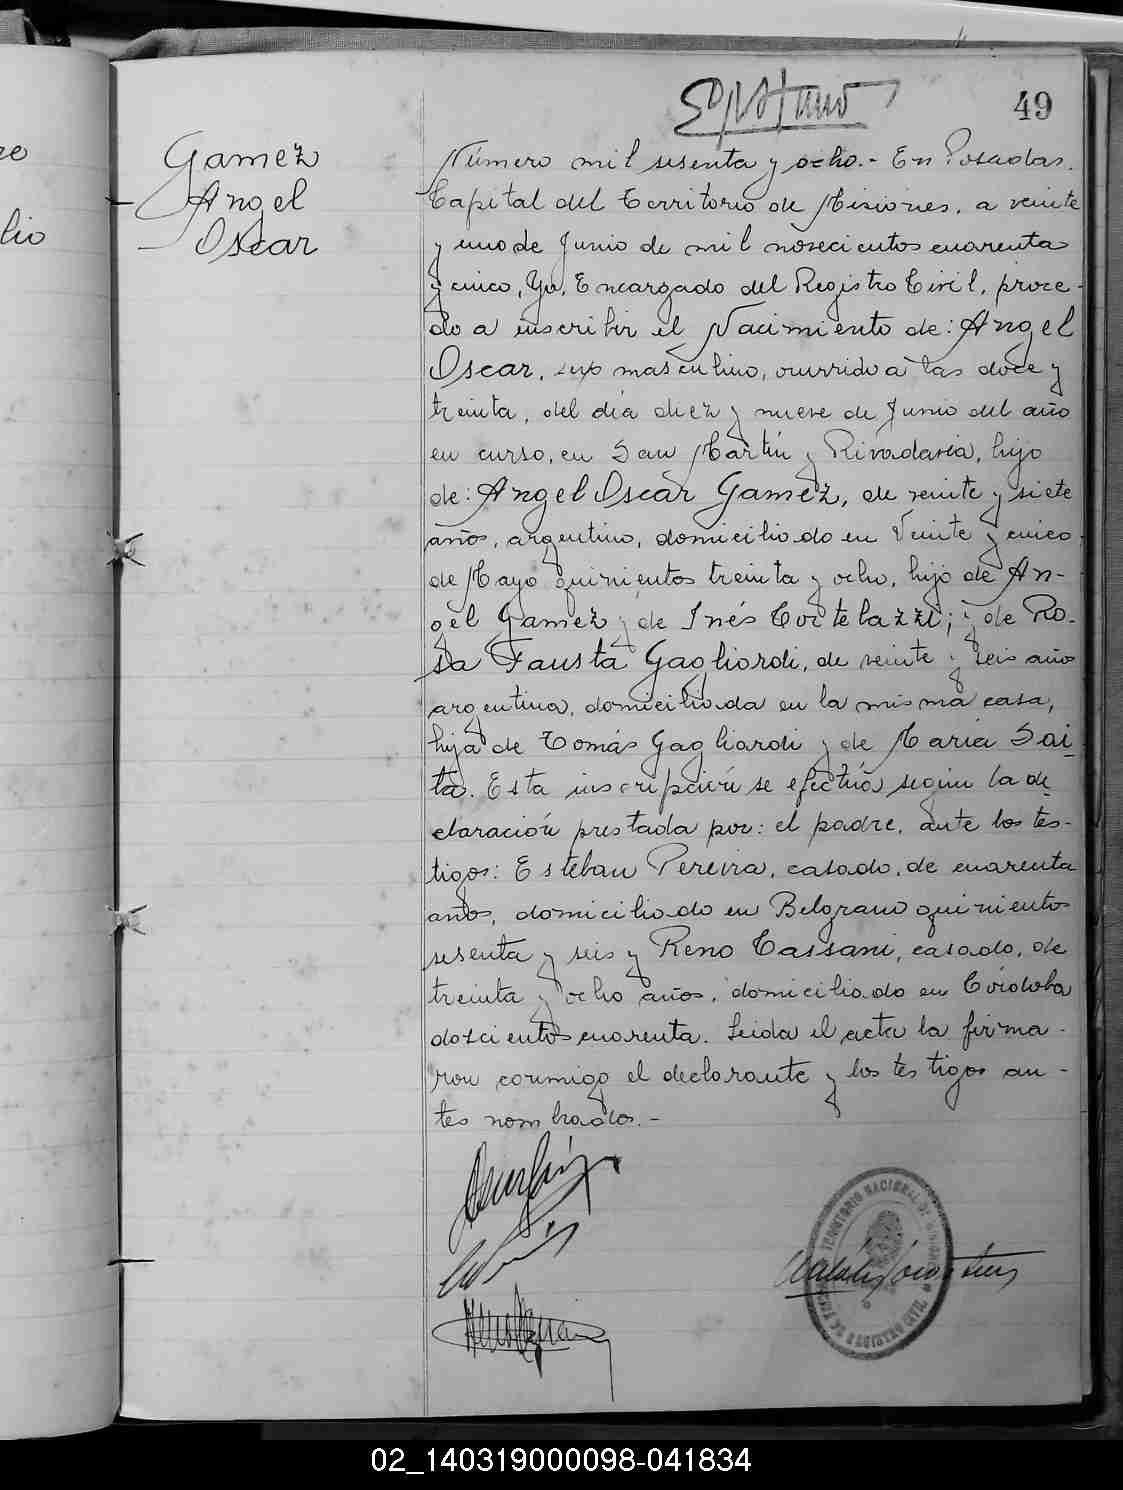 49
Gamez
Angel
Oscar
Número mil sesenta y ocho.- En Posadas.
Capital del Territorio de Misiones, a veinte
y uno de Junio de mil novecientos cuarenta
y cinco, Yo, Encargado del Registro Civil, proce-
do a inscribir el Nacimiento de: Angel
Oscar, sexo masculino, ocurrido a las doce y
treinta, del día diez y nueve de Junio del año
en curso, en San Martín y Rivadavia, hijo
de: Angel Oscar Gamez, de veinte y siete
años, argentino, domiciliado en Veinte y cinco
de Mayo quinientos treinta y ocho, hijo de An-
gel Gamez y de Inés Cortelazzi; y de Ro-
sa Fausta Gagliardi, de veinte y seis años
argentina, domiciliada en la misma casa,
hija de Tomás Gagliardi y de María Sai-
ta. Esta inscripción se efectúa según la de
claración prestada por: el padre, ante los tes-
tigos: Esteban Pereira, casado, de cuarenta
años, domiciliado en Belgrano quinientos
sesenta y seis y Reno Cassani, casado, de
treinta y ocho años, domiciliado en Córdoba
doscientos cuarenta. Leida el acta la firma-
ron conmigo el declarante y los testigos an-
tes nombrados.-
TERRITORIO NACIONAL DE MISIONES
REGISTRO CIVIL
re
lio
02_140319000098-041834